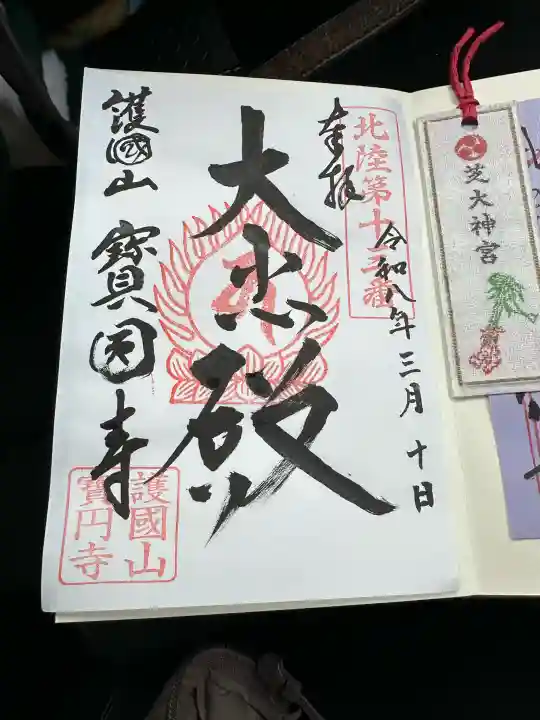 奉拝
北陸第十
番
令和八年三月十日
大悲殿
護國山 寳圓寺
護國山
寳円寺
芝大神宮